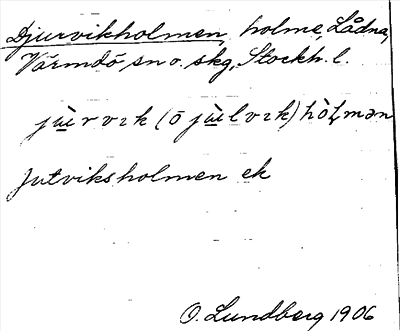 Djurvikholmen, holme, Lådna,
Värmdö sn o. skg, Stockh. l.
jùrvık (ō jùlvık) hòɭmən
Jutviksholmen ek
O. Lundberg 1906